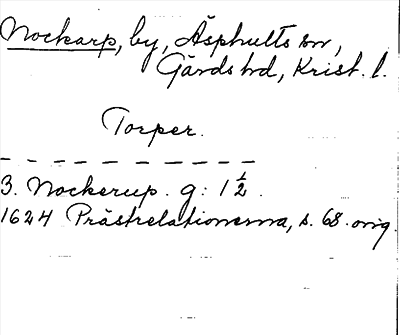 Nockarp, by, Äsphults sn,
Gärds hd, Krist. l.
Torper.
3. Nockerup. g: 1 ½.
1624 Prästrelationerna, s. 68. orig.